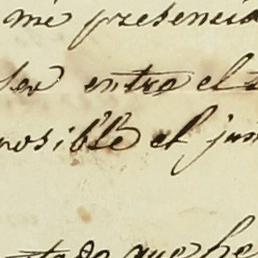 mi presencia
entre el
posible el jun
que he